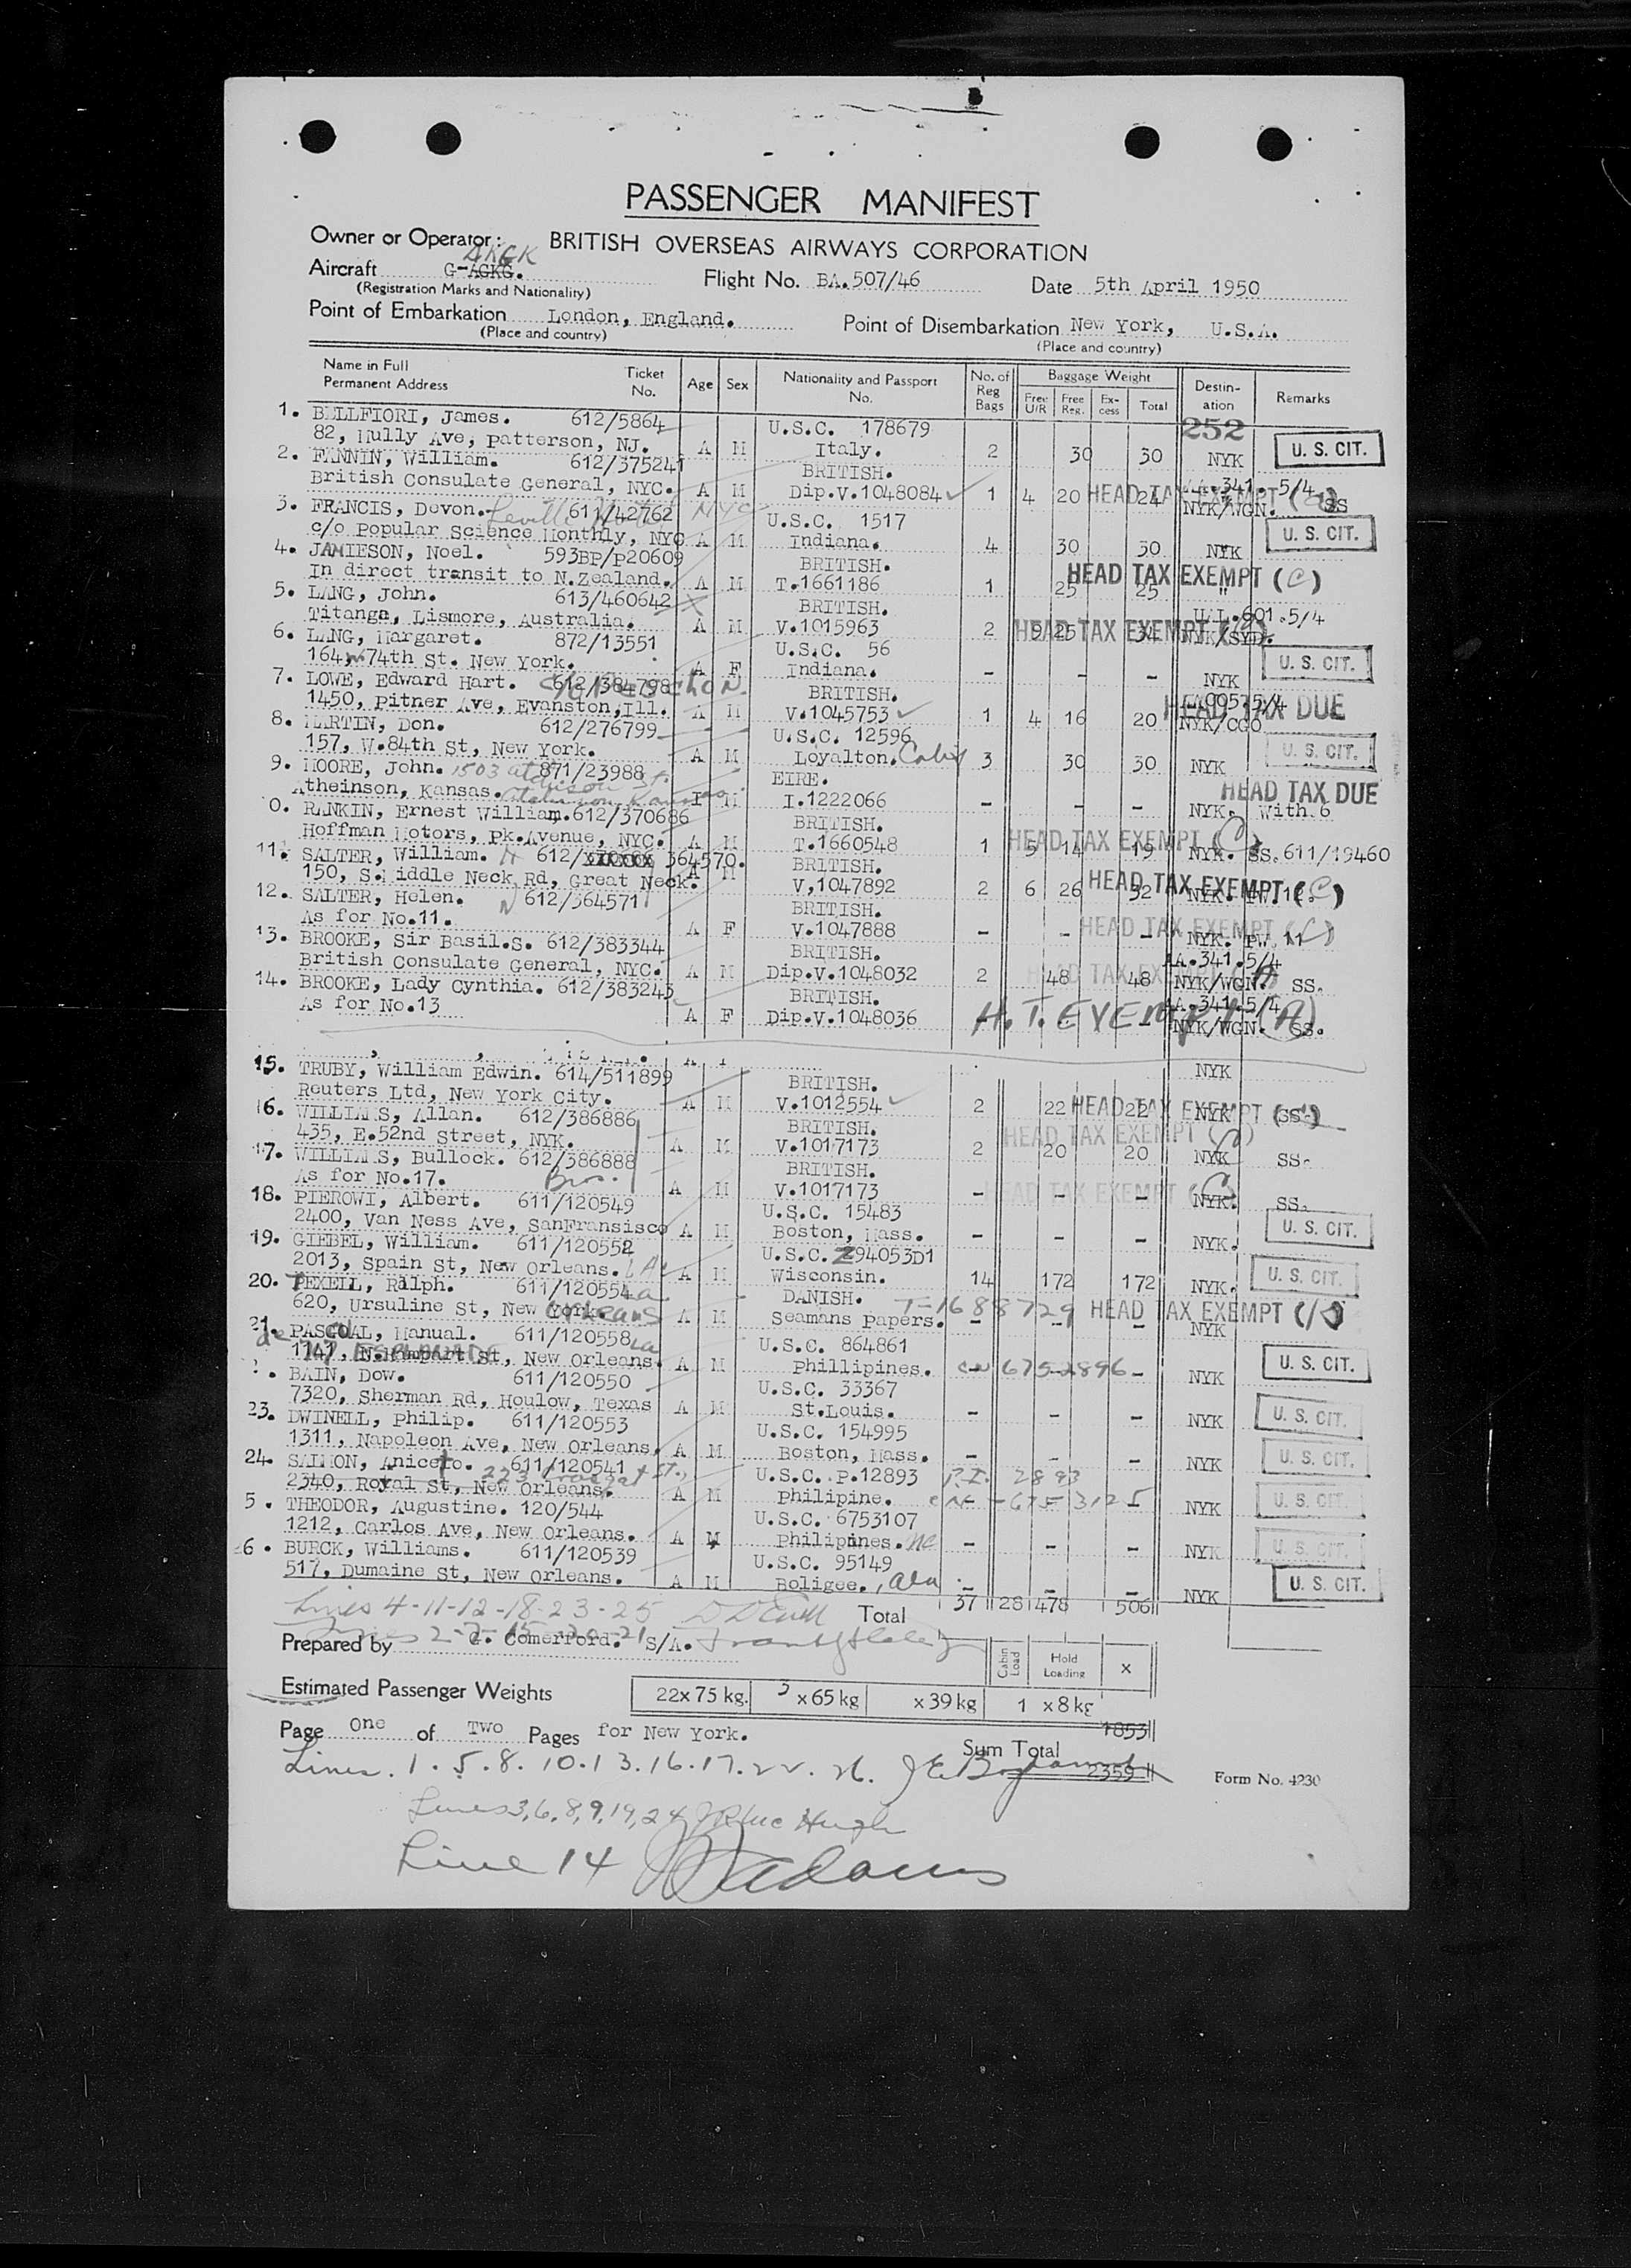 PASSENGER MANIFEST
Owner or Operator: BRITISH OVERSEAS AIRWAYS CORPORATION
AKGK
Aircraft G-AGKG. Flight No. BA.507/46 Date 5th April 1950
(Registration Marks and Nationality)
Point of Embarkation London, England. Point of Disembarkation New York, U.S.A.
(Place and country) (Place and country)
Name in Full Permanent Address Ticket No. Age Sex Nationality and Passport No. No. of Reg Bags Baggage Weight Free U/R Free Reg. Ex-cess Total Destin-ation Remarks
252
1. BELLFIORI, James. 612/5864 U.S.C. 178679
82, Hully Ave, Patterson, NJ. A M Italy. 2 30 30 NYK U. S. CIT.
2. FANNIN, William. 612/375241 BRITISH. AA.341. 5/4
British Consulate General, NYC. A M Dip.V.1048084 1 4 20 24 NYK/WGN. SS HEAD TAX EXEMPT
3. FRANCIS, Devon. 611/42762 NYC U.S.C. 1517
c/o Popular Science Monthly, NYC A M Indiana. 4 30 30 NYK U. S. CIT.
4. JAMIESON, Noel. 593BP/P20609 BRITISH.
In direct transit to N.Zealand. A M T.1661186 1 25 25 " HEAD TAX EXEMPT (C)
5. LANG, John. 613/460642 BRITISH. UAL.601.5/4
Titanga, Lismore, Australia. A M V.1015963 2 25 NYK/SYD. HEAD TAX EXEMPT
6. LANG, Margaret. 872/13551 U.S.C. 56
164, W 74th St. New York. A F Indiana. - - - NYK U. S. CIT.
7. LOWE, Edward Hart. 612/384798 BRITISH.
1450, Pitner Ave, Evanston, Ill. A M V.1045753 1 4 16 20 NYK/CGO HEAD TAX DUE
8. MARTIN, Don. 612/276799 U.S.C. 12596
157, W.84th St, New York. A M Loyalton. Calif 3 30 30 NYK U. S. CIT.
9. MOORE, John. 1503 Atchison St. 871/23988 EIRE.
Atheinson, Kansas. Atchison Kansas M I.1222066 - - - NYK. With.6 HEAD TAX DUE
0. RANKIN, Ernest William. 612/370686 BRITISH.
Hoffman Motors, Pk.Avenue, NYC. A M T.1660548 1 5 14 19 NYK. SS.611/19460 HEAD TAX EXEMPT (C)
11. SALTER, William. 612/ 364570. BRITISH.
150, S.Middle Neck Rd, Great Neck. A M V,1047892 2 6 26 32 NYK. PW.12. HEAD TAX EXEMPT (C)
12. SALTER, Helen. 612/364571 BRITISH.
As for No.11. A F V.1047888 - - - NYK. PW.11 HEAD TAX EXEMPT (C)
13. BROOKE, Sir Basil.S. 612/383344 BRITISH. AA.341.5/4
British Consulate General, NYC. A M Dip.V.1048032 2 48 48 NYK/WGN. SS. HEAD TAX EXEMPT
14. BROOKE, Lady Cynthia. 612/383243 BRITISH. AA.341.5/4
As for No.13 A F Dip.V.1048036 NYK/WGN. SS. H.T. EXEMPT (A)
NYK
15. TRUBY, William Edwin. 614/511899 BRITISH.
Reuters Ltd, New York City. A M V.1012554 2 22 22 NYK SS. HEAD TAX EXEMPT
16. WILLIAMS, Allan. 612/386886 BRITISH.
435, E.52nd Street, NYK. A M V.1017173 2 20 20 NYK SS. HEAD TAX EXEMPT
17. WILLIAMS, Bullock. 612/386888 BRITISH.
As for No.17. Bros. A M V.1017173 - - - NYK. SS. HEAD TAX EXEMPT (C)
18. PIEROWI, Albert. 611/120549 U.S.C. 15483
2400, Van Ness Ave, SanFransisco A M Boston, Mass. - - - NYK. U. S. CIT.
19. GIEBEL, William. 611/120552 U.S.C. Z94053D1
2013, Spain St, New Orleans. La A M Wisconsin. 14 172 172 NYK. U. S. CIT.
20. PEXELL, Ralph. 611/120554 DANISH. T-1688729
620, Ursuline St, New York. Orleans La A M Seamans Papers. - - - NYK HEAD TAX EXEMPT
21. PASCUAL, Manual. 611/120558 La U.S.C. 864861
1147, N.Rampart St, New Orleans. ESPLANADE A M Phillipines. 6752896 - NYK U. S. CIT.
. BAIN, Dow. 611/120550 U.S.C. 33367
7320, Sherman Rd, Houlow, Texas A M St.Louis. - - - NYK U. S. CIT.
23. DWINELL, Philip. 611/120553 U.S.C. 154995
1311, Napoleon Ave, New Orleans. A M Boston, Mass. - - - NYK U. S. CIT.
24. SALMON, Aniceto. 611/120541 U.S.C. P.12893
2340, Royal St, New Orleans. A M Philipine. NYK U. S. CIT.
5. THEODOR, Augustine. 120/544 U.S.C. 6753107
1212, Carlos Ave, New Orleans. A M Philipines. - - - NYK U. S. CIT.
26. BURCK, Williams. 611/120539 U.S.C. 95149
517, Dumaine St, New Orleans. A M Boligee., Ala - - - NYK U. S. CIT.
Lines 4-11-12-18-23-25 Total 37 28 478 506
Prepared by G. Comerford. S/A. Cabin Load Hold Loading X
Estimated Passenger Weights 22 x 75 kg. 3 x 65 kg x 39 kg 1 x 8 kg 1853
Page One of Two Pages for New York.
Sum Total 2359
Lines. 1. 5. 8. 10. 13. 16. 17. 22. 26.
Form No. 4230
Lines 3, 6, 8, 9, 19, 24 Mc Hugh
Line 14 Adams